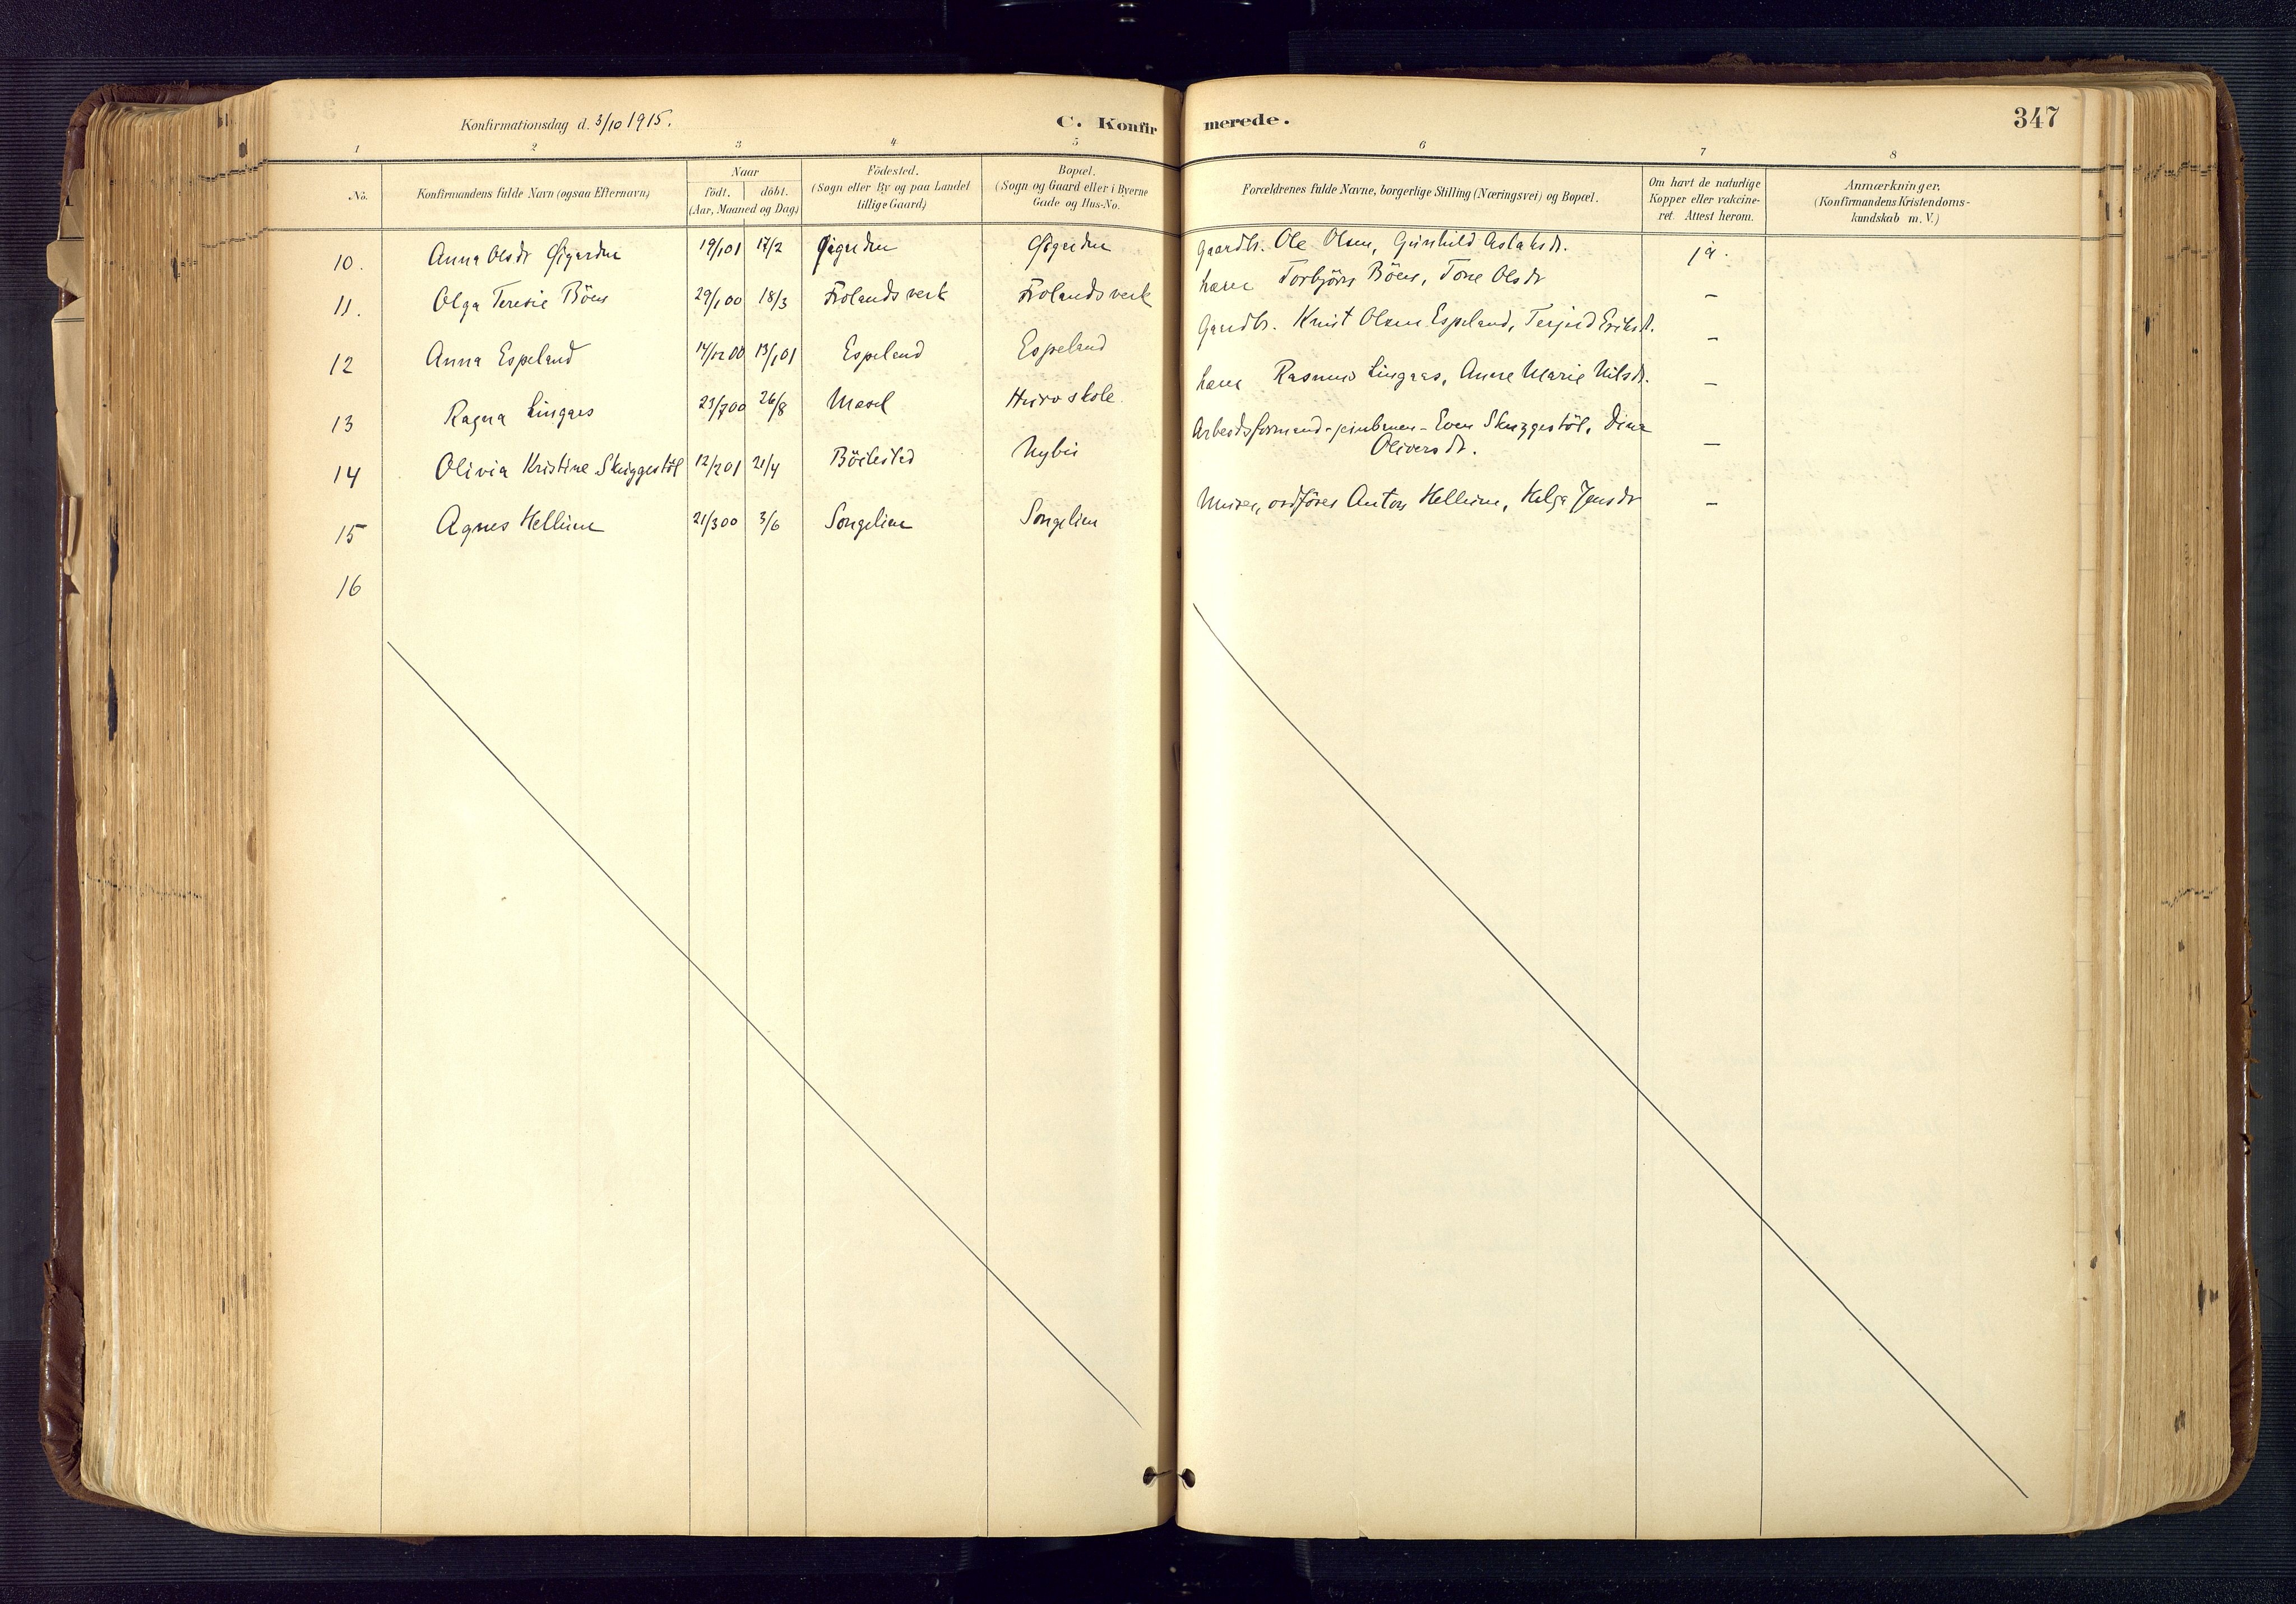 Konfirmationsdag d. 3/10 1915.
C. Konfirmerede.
347
1 2 3 4 5 6 7 8
No.
Konfirmandens fulde Navn (ogsaa Efternavn)
Naar
födt. döbt.
(Aar, Maaned og Dag)
Födested.
(Sogn eller By og paa Landet
tillige Gaard)
Bopæl.
(Sogn og Gaard eller i Byerne
Gade og Hus-No.
Forældrenes fulde Navne, borgerlige Stilling (Næringsvei) og Bopæl.
Om havt de naturlige
Kopper eller vakcine-
ret. Attest herom.
Anmærkninger.
(Konfirmandens Kristendoms-
kundskab m. V.)
10. Anna Olsdr Øigarden 19/1 01 17/2 Øigarden Øigarden Gaardbr. Ole Olsen, Gunhild Aslaksdr. ja.
11. Olga Teresie Böen 29/1 00 18/3 Frolands verk Frolands verk Torbjörn Böen, Tone Olsdr –
12 Anna Espeland 14/12 00 13/1 01 Espeland Espeland Gaardbr. Knut Olsen Espeland, Terjerd Eriksdt. –
13 Ragna Lingaas 23/7 00 26/8 Masel skole Rasmus Lingaas, Anne Marie Nilsdr. –
14 Olivia Kristine Skuggestöl 12/2 01 21/4 Böilestad Nybu Arbeidsformand Even Skuggestöl, Dina
Oliversdr. –
15 Agnes Hellum 21/3 00 3/6 Songelien Songelien Murer, ordförer Anton Hellum, Helga Jensdr –
16